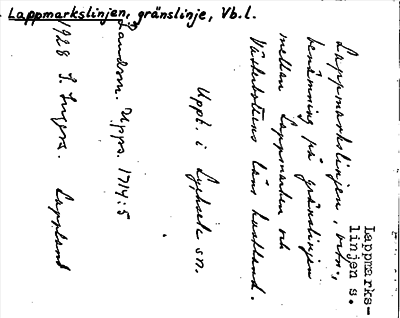 Lappmarkslinjen, gränslinje, Vb.l.
Lappmarks-
linjen s.
Lappmarkslinjen,
benämning på gränslinjen
mellan Lappmarken och
Västerbottens läns kustland.
Uppt. i Lycksele sn.
Landsm. Upps. 1714:5
1928 Lappland